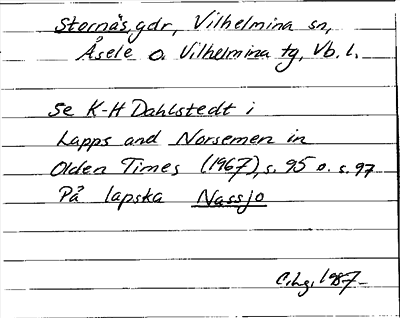 Stornäs, gdr, Vilhelmina sn,
Åsele o. Vilhelmina tg, Vb. l.
Se K-H Dahlstedt i
Lapps and Norsemen in
Olden Times (1967), s. 95 o. s. 97
På lapska Nassjo
1987